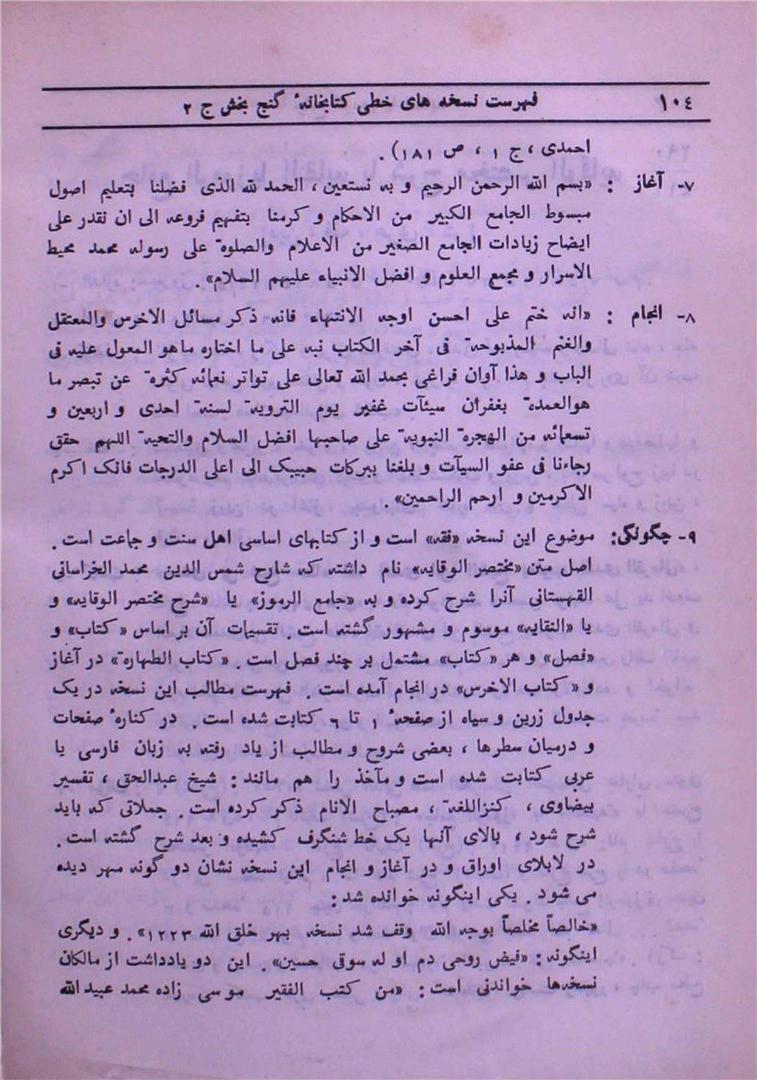 ۱۰٤ فهرست نسخه های خطی کتابخانهٔ گنج بخش ج ۲
احمدی، ج ۱، ص ۱۸۱).
۷- آغاز : «بسم الله الرحمن الرحیم و به نستعین، الحمد لله الذی فضلنا بتعلیم اصول
مبسوط الجامع الکبیر من الاحکام و کرمنا بتفهیم فروعه الی ان نقدر علی
ایضاح زیادات الجامع الصغیر من الاعلام والصلوة علی رسوله محمد محیط
الاسرار و مجمع العلوم و افضل الانبیاء علیهم السلام».
۸- انجام : «انه ختم علی احسن اوجه الانتهاء فانه ذکر مسائل الاخرس والمعتقل
والغنم المذبوحة فی آخر الکتاب نبه علی ما اختاره ماهو المعول علیه فی
الباب و هذا آوان فراغی بحمد الله تعالی علی تواتر نعمائه کثرة عن تبصر ما
هوالعمدة بغفران سیئات غفیر یوم الترویة لسنة احدی و اربعین و
تسعمائه من الهجرة النبویة علی صاحبها افضل السلام والتحیة اللهم حقق
رجاءنا فی عفو السیآت و بلغنا ببرکات حبیبک الی اعلی الدرجات فانک اکرم
الاکرمین و ارحم الراحمین».
۹- چگونگی: موضوع این نسخه «فقه» است و از کتابهای اساسی اهل سنت و جاعت است.
اصل متن «مختصر الوقایه» نام داشته که شارح شمس الدین محمد الخراسانی
القهستانی آنرا شرح کرده و به «جامع الرموز» یا «شرح مختصر الوقایه» و
یا «النقایه» موسوم و مشهور گشته است. تقسیمات آن بر اساس «کتاب» و
«فصل» و هر «کتاب» مشتمل بر چند فصل است. «کتاب الطهارة» در آغاز
و «کتاب الاخرس» در انجام آمده است. فهرست مطالب این نسخه در یک
جدول زرین و سیاه از صفحهٔ ۱ تا ۶ کتابت شده است. در کنارهٔ صفحات
و درمیان سطرها، بعضی شروح و مطالب از یاد رفته به زبان فارسی یا
عربی کتابت شده است و مآخذ را هم مانند: شیخ عبدالحق، تفسیر
بیضاوی، کنزاللغة، مصباح الانام ذکر کرده است. جملاتی که باید
شرح شود، بالای آنها یک خط شنگرف کشیده و بعد شرح گشته است.
در لابلای اوراق و در آغاز و انجام این نسخه نشان دو گونه مهر دیده
می شود. یکی اینگونه خوانده شد:
«خالصاً مخلصاً بوجه الله وقف شد نسخه بهر خلق الله ۱۲۲۳». و دیگری
اینگونه: «فیض روحی دم او له سوق حسین». این دو یادداشت از مالکان
نسخهها خواندنی است: «من کتب الفقیر موسی زاده محمد عبید الله